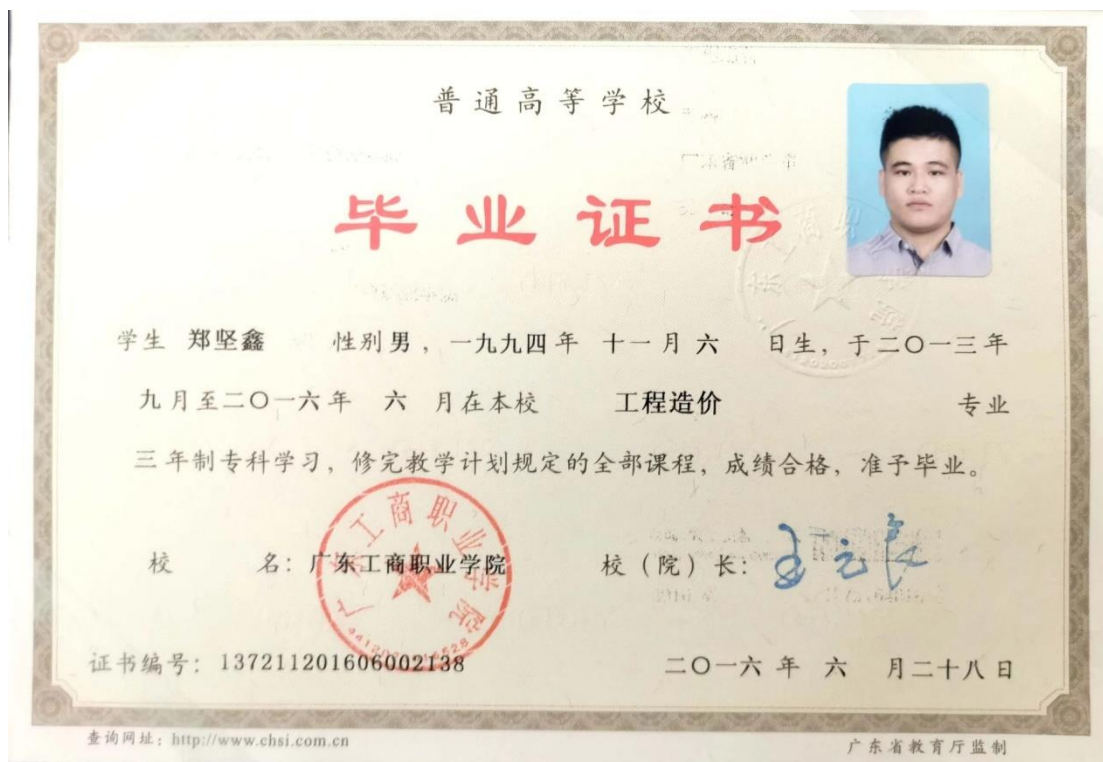 普通高等学校
毕业证书
学生 郑坚鑫 性别 男 ，一九九四 年 十一 月 六 日生，于二〇一三年
九月至二〇一六年 六 月在本校 工程造价 专业
三 年制专科学习，修完教学计划规定的全部课程，成绩合格，准予毕业。
校 名：广东工商职业学院 校（院）长：
广东工商职业学院
证书编号：137211201606002138 二〇一六 年 六 月二十八日
查询网址：http://www.chsi.com.cn 广东省教育厅监制